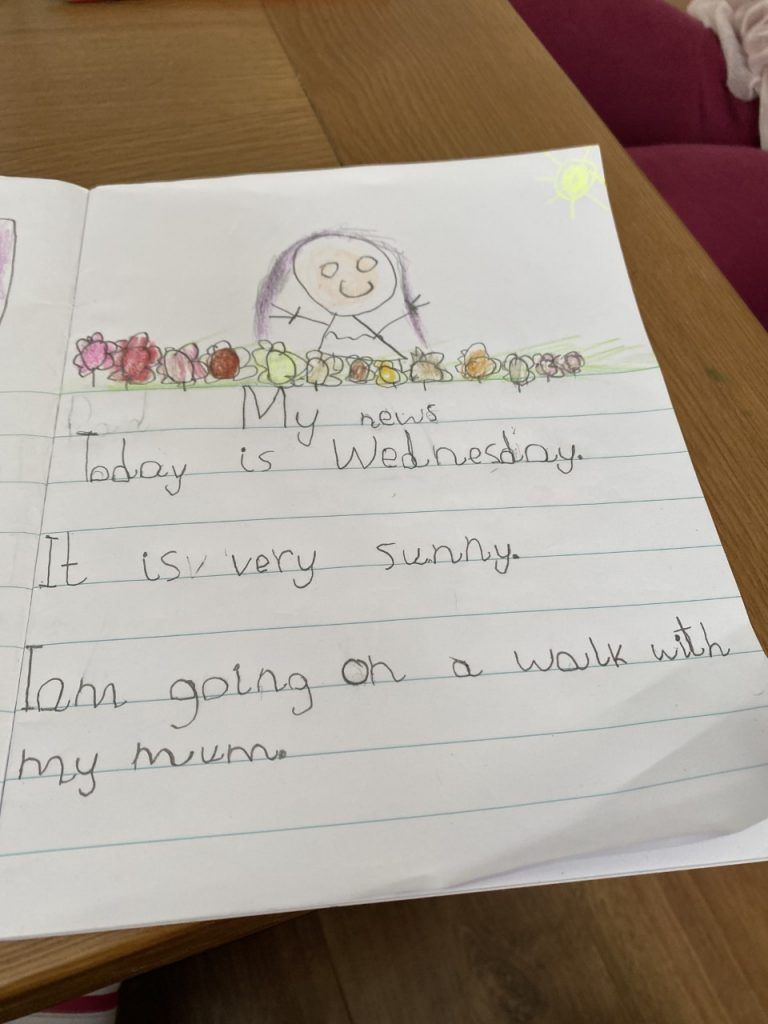 My news
Today is Wednesday.
It is very sunny.
I am going on a walk with
my mum.